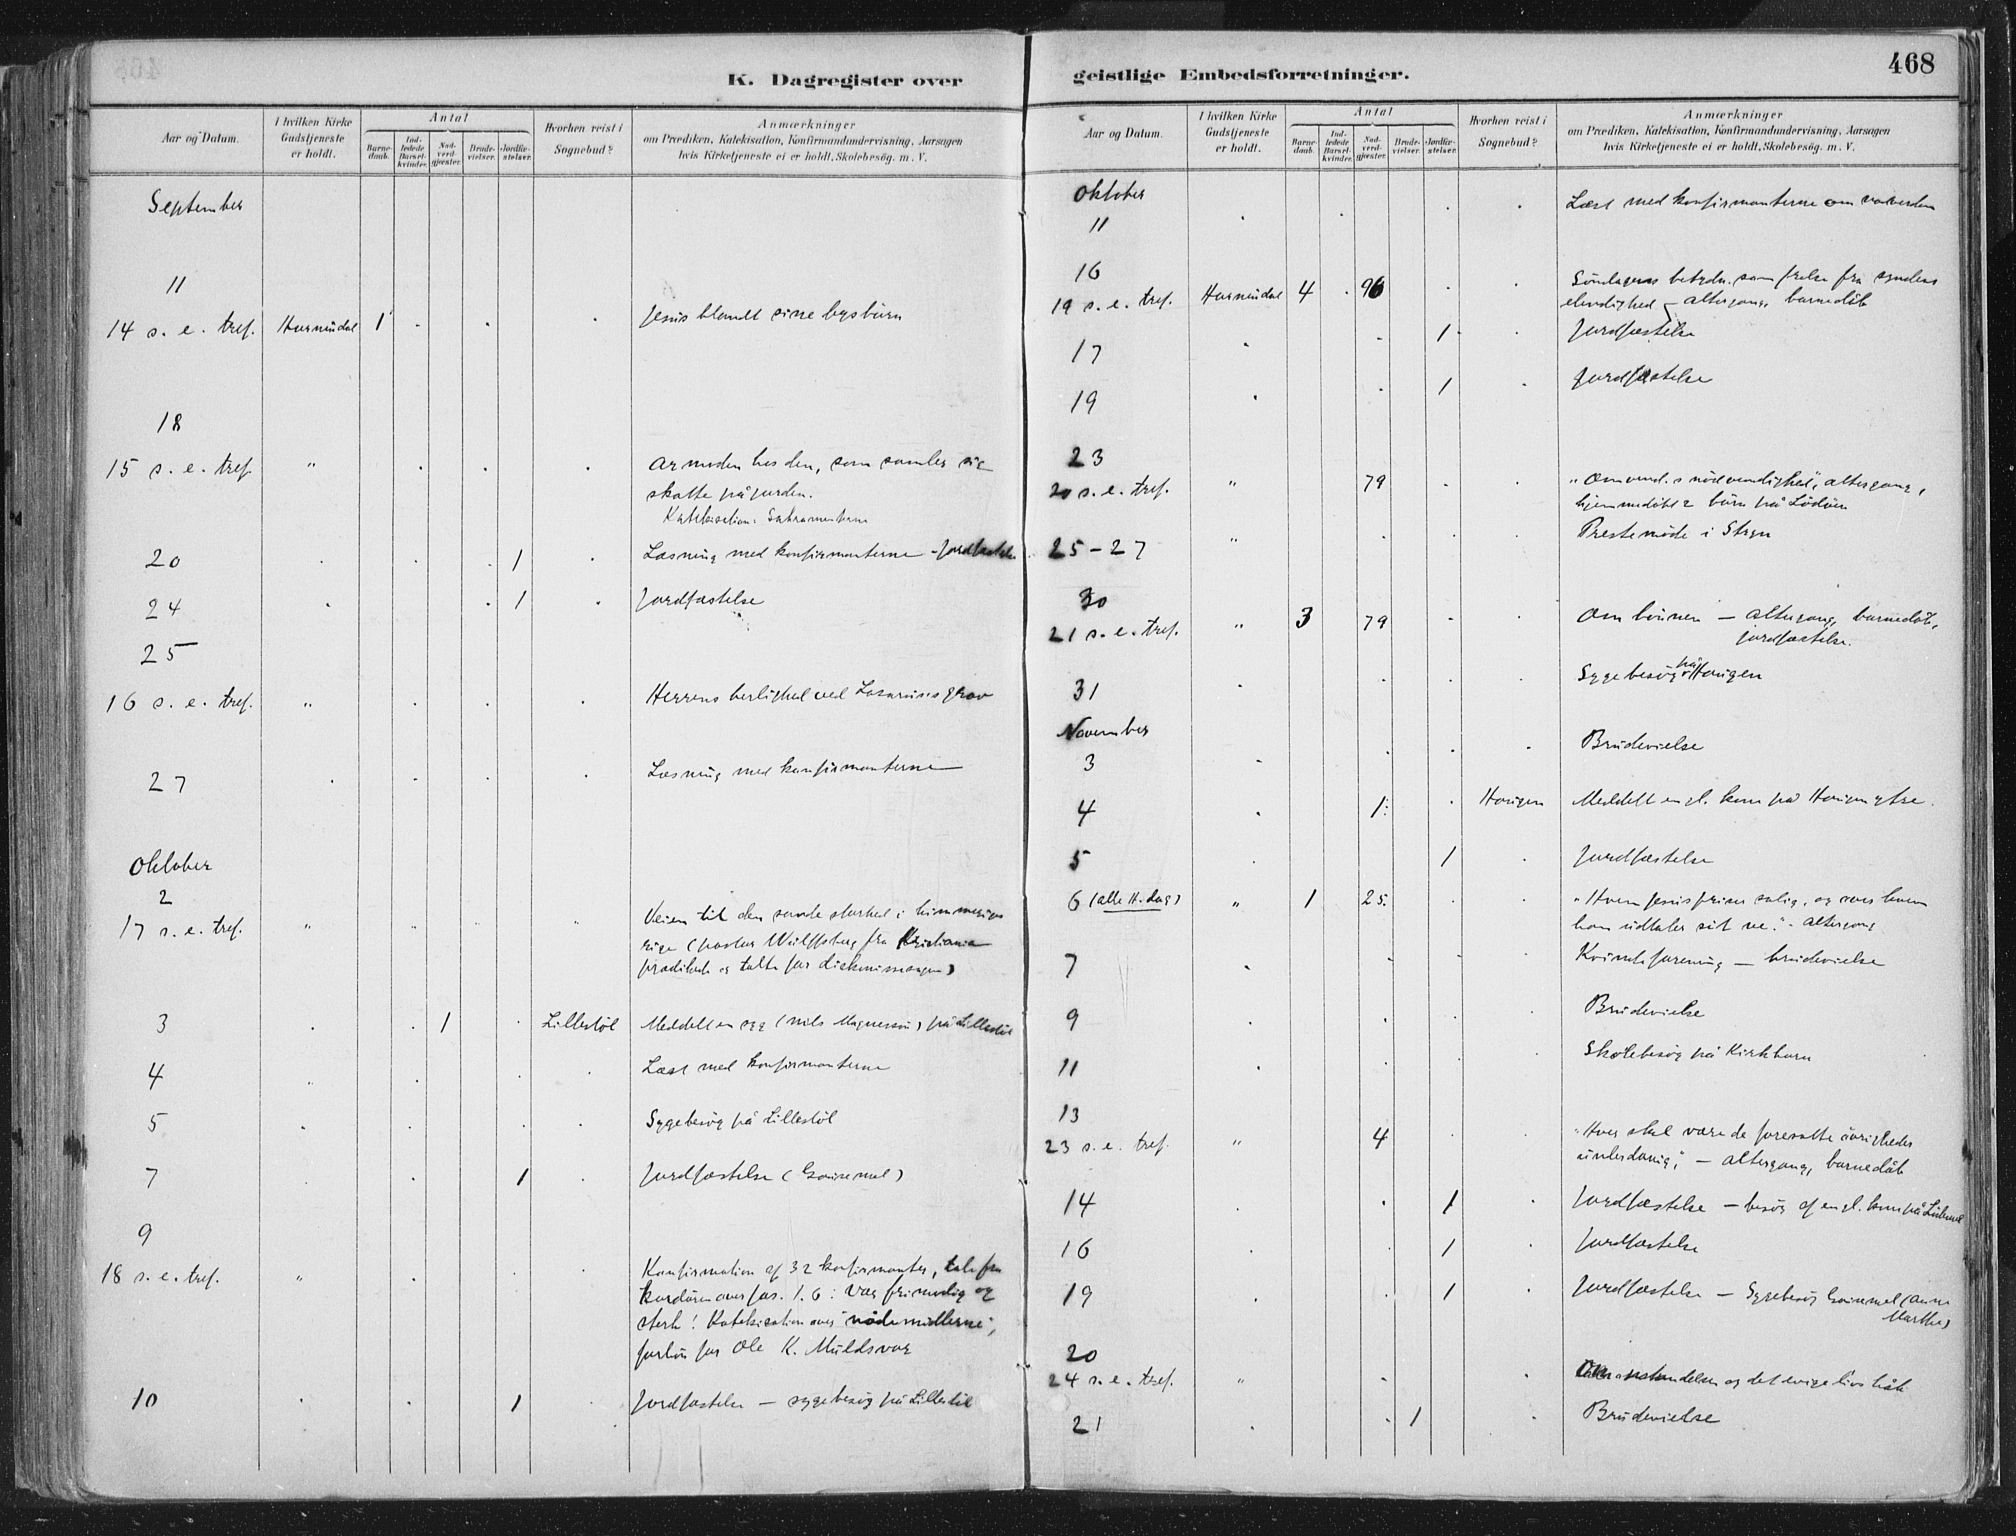 K. Dagregister over
Aar og Datum.
I hvilken Kirke Gudstjeneste er holdt.
Antal
Barnedaab.
Indledede Barselkvinder.
Nadverdgjæster.
Brudevielser.
Jordfæstelser.
Hvorhen reist i Sognebud?
Anmærkninger
om Prædiken, Katekisation, Konfirmandundervisning, Aarsagen
hvis Kirketjeneste ei er holdt, Skolebesög. m. V.
September
11
14 s. e. tref. Hornindal 1 Jesus blandt sine bysbörn
18
15 s. e. tref. " Armoden hos den, som samler sig
skatte på jorden.
Katekisation: Sakramenterne
20 1 Læsning med konfirmanterne - Jordfæstelse
24 1 Jordfæstelse
25
16 s. e. tref. " Herrens herlighed ved Lazaruses grav
27 Læsning med konfirmanterne
Oktober
2
17 s. e. tref. " " Veien til den sande storhed i himmeriges
rige (pastor Wülffsberg fra Kristiania
prædikede og talte for diakonissesagen)
3 1 Lillestöl Meddelt en syg (Nils Magnessön) på Lillestöl
4 Læst med konfirmanterne
5 Sygebesög på Lillestöl
7 1 Jordfæstelse
9
18 s. e. tref. " Konfirmation af 32 konfirmanter, tale fra
kordören over Jos. 1.6: Vær frimodig og
sterk! Katekisation over "nådemidlerne",
forbön for Ole K. Muldsvor
10 1 Jordfæstelse - sygebesög på Lillestöl
geistlige Embedsforretninger.
468
Aar og Datum.
I hvilken Kirke Gudstjeneste er holdt.
Antal
Barnedaab.
Indledede Barselkvinder.
Nadverdgjæster.
Brudevielser.
Jordfæstelser.
Hvorhen reist i Sognebud?
Anmærkninger
om Prædiken, Katekisation, Konfirmandundervisning, Aarsagen
hvis Kirketjeneste ei er holdt, Skolebesög. m. V.
Oktober
11 Læst med konfirmanterne om nadverden
16
19 s. e. tref. Hornindal 4 96 Söndagens betydn. som frelse fra syndens
elendighed - altergang, barnedåb
17 1 Jordfæstelse
19 1 Jordfæstelse
23
20 s. e. tref. " 79 "Omvend.s nödvendighed", altergang,
hjemmedöbt 2 börn på
25 - 27 " Prestemöde i Stryn
30
21 s. e. tref. " 3 79 Om bönnen - altergang, barnedåb,
jordfæstelse.
31 Sygebesög på Horigen
November
3 Brudevielse
4 1 Horigen Meddelt en gl. kone på Horigen ytre.
5 1 Jordfæstelse
6 (alle H. dag) " 1 25 "Hvem Jesus priser salig, og over hvem
han udtaler sit ve." - altergang
7 Kvindeforening - brudevielse
9 Brudevielse
11 Skolebesög på Kirkhorn
13
23 s. e. tref. " 4 "Hver skal være de foresatte övrigheder
underdanig", - altergang, barnedåb
14 1 Jordfæstelse - besög af en gl. kone på
16 1 Jordfæstelse
19 1 Jordfæstelse - Sygebesög (Anne
Marthe)
20
24 s. e. tref. " Om opstandelsen og det evige livs håb
21 1 Brudevielse